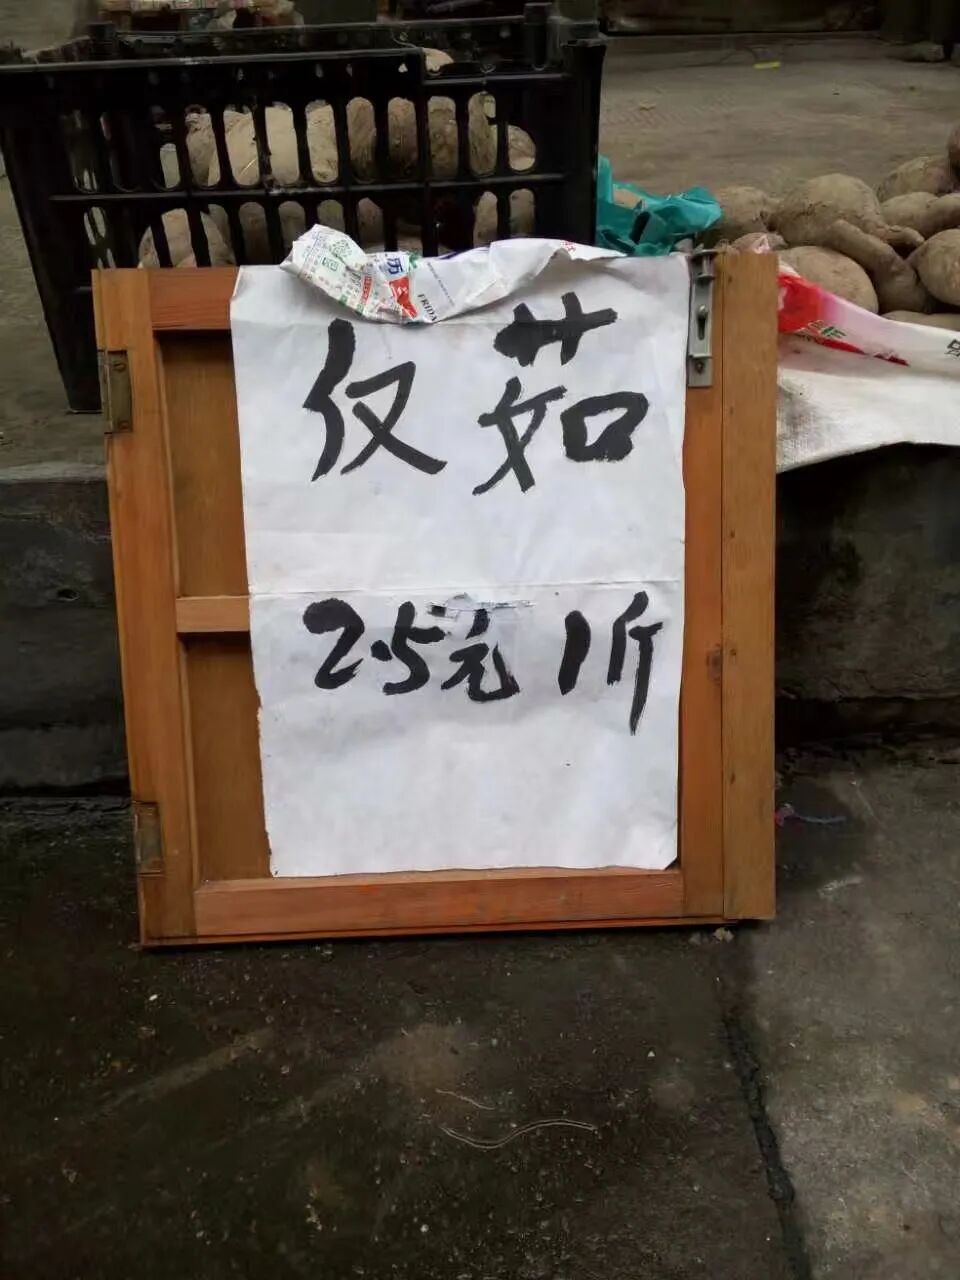 FRIDA
仅茹
2.5元1斤